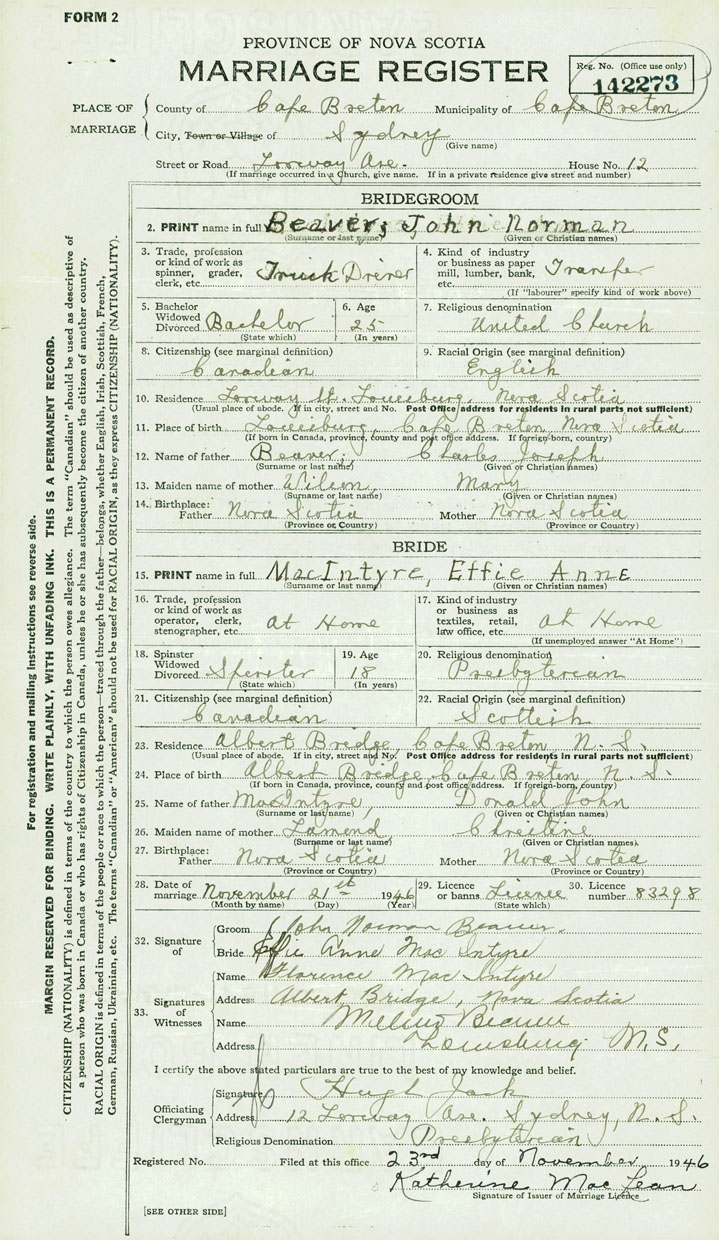 FORM 2
PROVINCE OF NOVA SCOTIA
MARRIAGE REGISTER
Reg. No. (Office use only)
142273
PLACE OF MARRIAGE
County of Cape Breton Municipality of Cape Breton
City, Town or Village of Sydney
(Give name)
Street or Road Lorway Ave. House No. 12
(If marriage occurred in a Church, give name. If in a private residence give street and number)
BRIDEGROOM
2. PRINT name in full Beaver, John Norman
(Surname or last name) (Given or Christian names)
3. Trade, profession or kind of work as spinner, grader, clerk, etc. Truck Driver
4. Kind of industry or business as paper mill, lumber, bank, etc. Transfer
(If "labourer" specify kind of work above)
5. Bachelor Widowed Divorced Bachelor
(State which)
6. Age 25
(In years)
7. Religious denomination
United Church
8. Citizenship (see marginal definition)
Canadian
9. Racial Origin (see marginal definition)
English
10. Residence Lorway St. Louisburg, Nova Scotia
(Usual place of abode. If in city, street and No. Post Office address for residents in rural parts not sufficient)
11. Place of birth Louisburg, Cape Breton Nova Scotia
(If born in Canada, province, county and post office address. If foreign-born, country)
12. Name of father Beaver, Charles Joseph
(Surname or last name) (Given or Christian names)
13. Maiden name of mother Wilson, Mary
(Surname or last name) (Given or Christian names)
14. Birthplace: Father Nova Scotia Mother Nova Scotia
(Province or Country) (Province or Country)
BRIDE
15. PRINT name in full MacIntyre, Effie Anne
(Surname or last name) (Given or Christian names)
16. Trade, profession or kind of work as operator, clerk, stenographer, etc. At Home
17. Kind of industry or business as textiles, retail, law office, etc. At Home
(If unemployed answer "At Home")
18. Spinster Widowed Divorced Spinster
(State which)
19. Age 18
(In years)
20. Religious denomination
Presbyterian
21. Citizenship (see marginal definition)
Canadian
22. Racial Origin (see marginal definition)
Scottish
23. Residence Albert Bridge, Cape Breton N. S.
(Usual place of abode. If in city, street and No. Post Office address for residents in rural parts not sufficient)
24. Place of birth Albert Bridge, Cape Breton, N. S.
(If born in Canada, province, county and post office address. If foreign-born, country)
25. Name of father MacIntyre, Donald John
(Surname or last name) (Given or Christian names)
26. Maiden name of mother Lamond, Christine
(Surname or last name) (Given or Christian names)
27. Birthplace: Father Nova Scotia Mother Nova Scotia
(Province or Country) (Province or Country)
28. Date of marriage November 21st 1946
(Month by name) (Day) (Year)
29. Licence or banns Licence
(State which)
30. Licence number 83298
32. Signature of
Groom John Norman Beaver.
Bride Effie Anne MacIntyre
33. Signatures of Witnesses
Name Florence MacIntyre
Address Albert Bridge, Nova Scotia
Name
Address Louisburg N.S.
I certify the above stated particulars are true to the best of my knowledge and belief.
Officiating Clergyman
Signature Hugh Jack
Address 12 Lorway Ave. Sydney, N. S.
Religious Denomination Presbyterian
Registered No. Filed at this office 23rd day of November 1946
Katherine MacLean
Signature of Issuer of Marriage Licence
[SEE OTHER SIDE]
For registration and mailing instructions see reverse side.
MARGIN RESERVED FOR BINDING. WRITE PLAINLY, WITH UNFADING INK. THIS IS A PERMANENT RECORD.
CITIZENSHIP (NATIONALITY) is defined in terms of the country to which the person owes allegiance. The term "Canadian" should be used as descriptive of
a person who was born in Canada or who has rights of Citizenship in Canada, unless he or she has subsequently become the citizen of another country.
RACIAL ORIGIN is defined in terms of the people or race to which the person—traced through the father—belongs, whether English, Irish, Scottish, French,
German, Russian, Ukrainian, etc. The terms "Canadian" or "American" should not be used for RACIAL ORIGIN, as they express CITIZENSHIP (NATIONALITY).